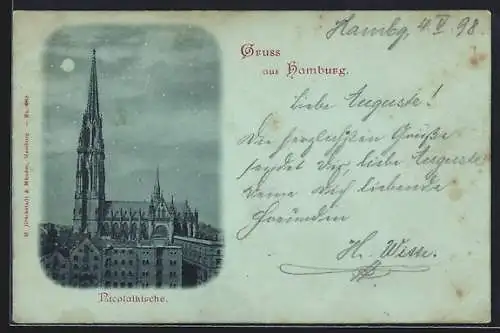 Hambg, 4.V.98.
Gruss
aus Hamburg.
Liebe Auguste!
Die herzlichsten Grüße
sendet Dir, liebe Auguste
Deine Dich liebende
Freundin
H. Witt
Nicolaikirche.